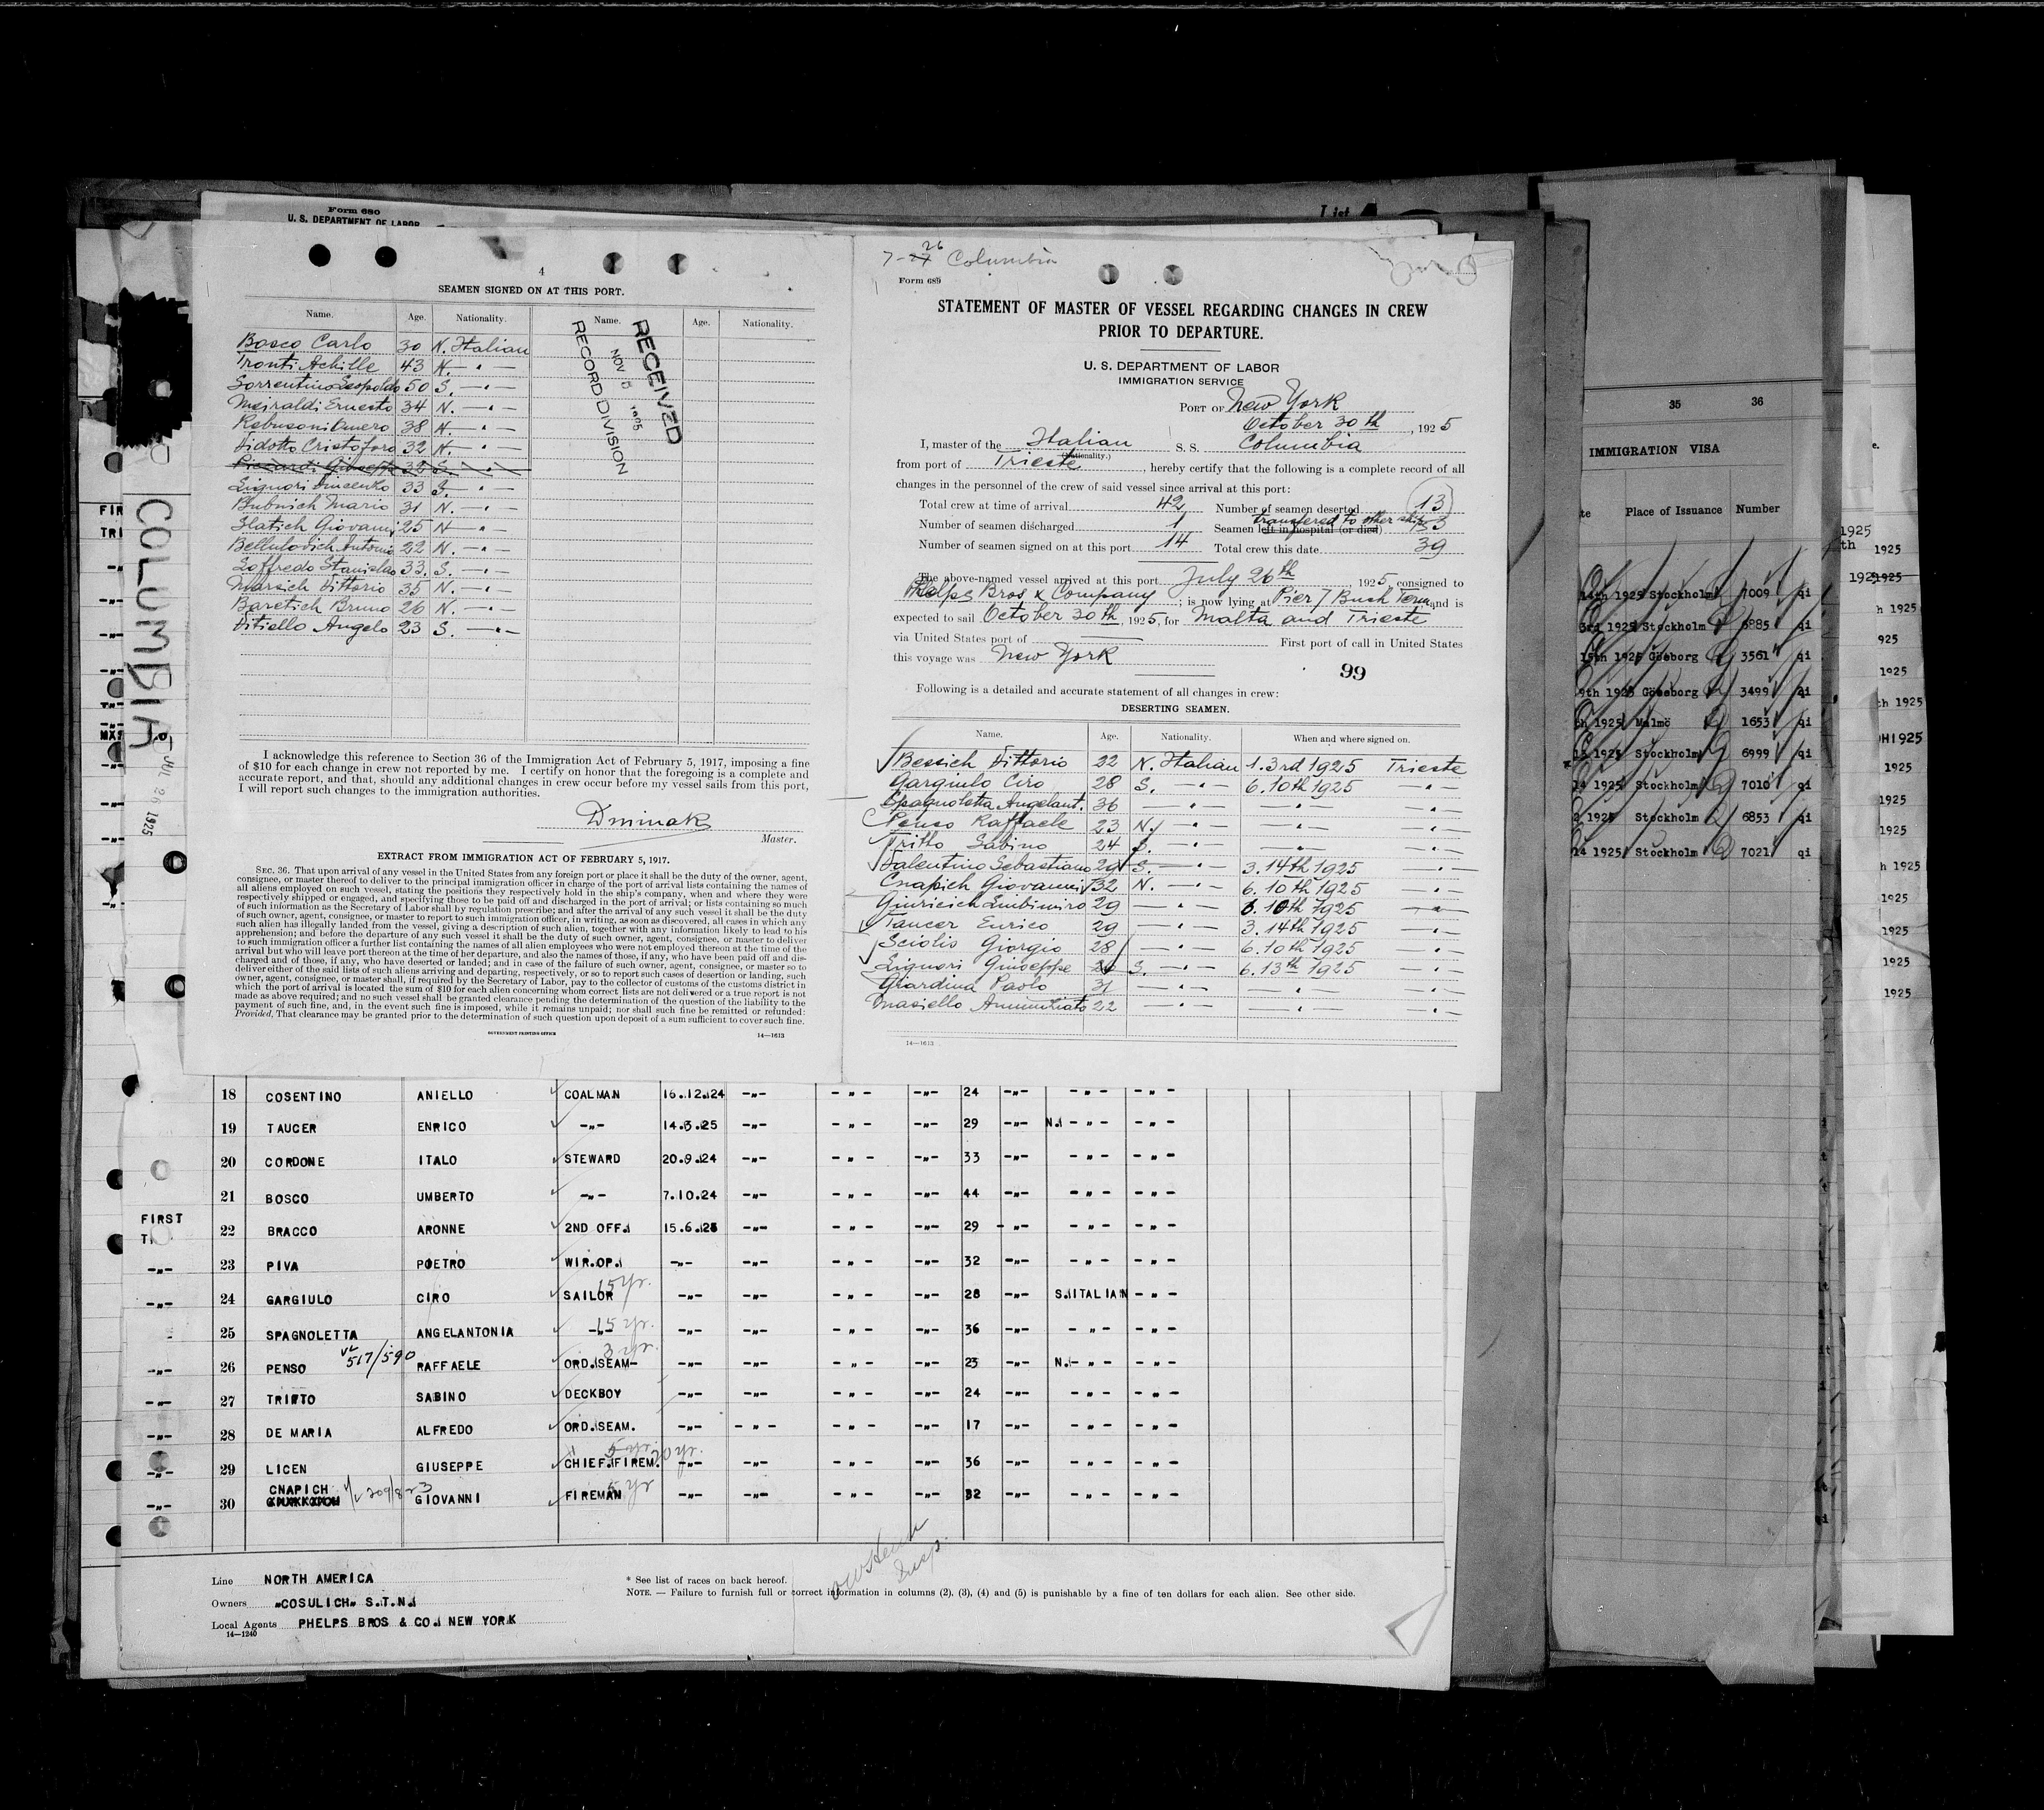 Form 680
U. S. DEPARTMENT OF LABOR
List
4
SEAMEN SIGNED ON AT THIS PORT.
Name. Age. Nationality. Name. Age. Nationality.
Bosco Carlo 30 N. Italian
Tronti Achille 43 N. — " —
Sorrentino Leopoldo 50 S. — " —
Meiraldi Ernesto 34 N. — " —
Rebusoni Omero 38 N. — " —
Vidotto Cristoforo 32 N. — " —
Piccardi Giuseppe 32 S. — " —
Liguori Vincenzo 33 S. — " —
Bubnich Mario 31 N. — " —
Ilatich Giovanni 25 N — " —
Bellulovich Antonio 22 N. — " —
Loffredo Stanislao 33. S. — " —
Marsich Vittorio 35 N. — " —
Baretich Bruno 26 N. — " —
Vitiello Angelo 23 S. — " —
RECEIVED
NOV
RECORD DIVISION
I acknowledge this reference to Section 36 of the Immigration Act of February 5, 1917, imposing a fine
of $10 for each change in crew not reported by me. I certify on honor that the foregoing is a complete and
accurate report, and that, should any additional changes in crew occur before my vessel sails from this port,
I will report such changes to the immigration authorities.
Dminak
Master.
EXTRACT FROM IMMIGRATION ACT OF FEBRUARY 5, 1917.
SEC. 36. That upon arrival of any vessel in the United States from any foreign port or place it shall be the duty of the owner, agent,
consignee, or master thereof to deliver to the principal immigration officer in charge of the port of arrival lists containing the names of
all aliens employed on such vessel, stating the positions they respectively hold in the ship's company, when and where they were
respectively shipped or engaged, and specifying those to be paid off and discharged in the port of arrival; or lists containing so much
of such information as the Secretary of Labor shall by regulation prescribe; and after the arrival of any such vessel it shall be the duty
of such owner, agent, consignee, or master to report to such immigration officer, in writing, as soon as discovered, all cases in which any
such alien has illegally landed from the vessel, giving a description of such alien, together with any information likely to lead to his
apprehension; and before the departure of any such vessel it shall be the duty of such owner, agent, consignee, or master to deliver
to such immigration officer a further list containing the names of all alien employees who were not employed thereon at the time of the
arrival but who will leave port thereon at the time of her departure, and also the names of those, if any, who have been paid off and dis-
charged and of those, if any, who have deserted or landed; and in case of the failure of such owner, agent, consignee, or master so to
deliver either of the said lists of such aliens arriving and departing, respectively, or so to report such cases of desertion or landing, such
owner, agent, consignee, or master shall, if required by the Secretary of Labor, pay to the collector of customs of the customs district in
which the port of arrival is located the sum of $10 for each alien concerning whom correct lists are not delivered or a true report is not
made as above required; and no such vessel shall be granted clearance pending the determination of the question of the liability to the
payment of such fine, and, in the event such fine is imposed, while it remains unpaid; nor shall such fine be remitted or refunded:
Provided, That clearance may be granted prior to the determination of such question upon deposit of a sum sufficient to cover such fine.
GOVERNMENT PRINTING OFFICE
14—1613
7-26 Columbia
Form 689
STATEMENT OF MASTER OF VESSEL REGARDING CHANGES IN CREW
PRIOR TO DEPARTURE.
U. S. DEPARTMENT OF LABOR
IMMIGRATION SERVICE
PORT OF New York
October 30 th, 1925
I, master of the Italian S. S. Columbia
(Nationality.)
from port of Trieste, hereby certify that the following is a complete record of all
changes in the personnel of the crew of said vessel since arrival at this port:
Total crew at time of arrival 42 Number of seamen deserted 13
transfered to other ship
Number of seamen discharged 1 Seamen left in hospital (or died) 3
Number of seamen signed on at this port 14 Total crew this date 39
The above-named vessel arrived at this port July 26th, 1925, consigned to
Phelps Bros & Company; is now lying at Pier 7 Bush Term and is
expected to sail October 30th, 1925, for Malta and Trieste
via United States port of First port of call in United States
this voyage was New York
99
Following is a detailed and accurate statement of all changes in crew:
DESERTING SEAMEN.
Name. Age. Nationality. When and where signed on.
Bessich Vittorio 22 N. Italian 1. 3rd 1925 Trieste
Gargiulo Ciro 28 S. — " — 6. 10th 1925 — " —
Spagnoletta Angelant. 36 — " — — " — — " —
Penso Raffaele 23 N. — " — — " — — " —
Tritto Sabino 24 S. — " — — " — — " —
Valentino Sebastiano 20 S. — " — 3. 14th 1925 — " —
Cnapich Giovanni 32 N. — " — 6. 10th 1925 — " —
Giuricich Embimiro 29 — " — 6. 10th 1925 — " —
Taucer Enrico 29 — " — 3. 14th 1925 — " —
Sciolis Giorgio 28 — " — 6. 10th 1925 — " —
Liguori Giuseppe 26 S. — " — 6. 13th 1925 — " —
Giardina Paolo 31 — " — — " — — " —
Masiello Annunziato 22 — " — — " — — " —
14—1613
COLUMBIA
JUL 26 1925
18 COSENTINO ANIELLO COALMAN 16.12.24 -"- - " - -"- 24 -"- - " - - " -
19 TAUCER ENRICO -"- 14.3.25 -"- - " - -"- 29 -"- N. - " - - " -
20 CORDONE ITALO STEWARD 20.9.24 -"- - " - -"- 33 -"- - " - - " -
21 BOSCO UMBERTO -"- 7.10.24 -"- - " - -"- 44 -"- - " - - " -
FIRST
22 BRACCO ARONNE 2ND OFF. 15.6.25 -"- - " - -"- 29 -"- - " - - " -
23 PIVA POETRO WIR.OP. -"- -"- - " - -"- 32 -"- - " - - " -
15 yr.
24 GARGIULO CIRO SAILOR -"- -"- - " - -"- 28 S.ITALIAN - " -
15 yr.
25 SPAGNOLETTA ANGELANTONIA -"- -"- -"- - " - -"- 36 -"- - " - - " -
3 yr.
26 PENSO 517/590 RAFFAELE ORD.SEAM- -"- -"- - " - -"- 23 -"- N. - " - - " -
27 TRITTO SABINO DECKBOY -"- -"- - " - -"- 24 -"- - " - - " -
28 DE MARIA ALFREDO ORD.SEAM. -"- - " - - " - -"- 17 -"- - " - - " -
5 yr. 20 yr.
29 LICEN GIUSEPPE CHIEF.FIREM. -"- -"- - " - -"- 36 -"- - " - - " -
5 yr
30 CNAPICH GIOVANNI FIREMAN -"- -"- - " - -"- 32 -"- - " - - " -
Insp.
Line NORTH AMERICA
Owners "COSULICH" S.T.N.
Local Agents PHELPS BROS & CO. NEW YORK
14—1240
* See list of races on back hereof.
NOTE. — Failure to furnish full or correct information in columns (2), (3), (4) and (5) is punishable by a fine of ten dollars for each alien. See other side.
35 36
IMMIGRATION VISA
te Place of Issuance Number
14th 1925 Stockholm 7009 qi
3rd 1925 Stockholm 6885 qi
15th 1925 Göteborg 3561 qi
9th 1925 Göteborg 3499 qi
th 1925 Malmö 1653 qi
13 1925 Stockholm 6999 qi
14 1925 Stockholm 7010 qi
2 1925 Stockholm 6853 qi
14 1925 Stockholm 7021 qi
e.
1925
th 1925
1925
h 1925
925
1925
th 1925
1925
1925
1925
1925
h 1925
1925
1925
1925
1925